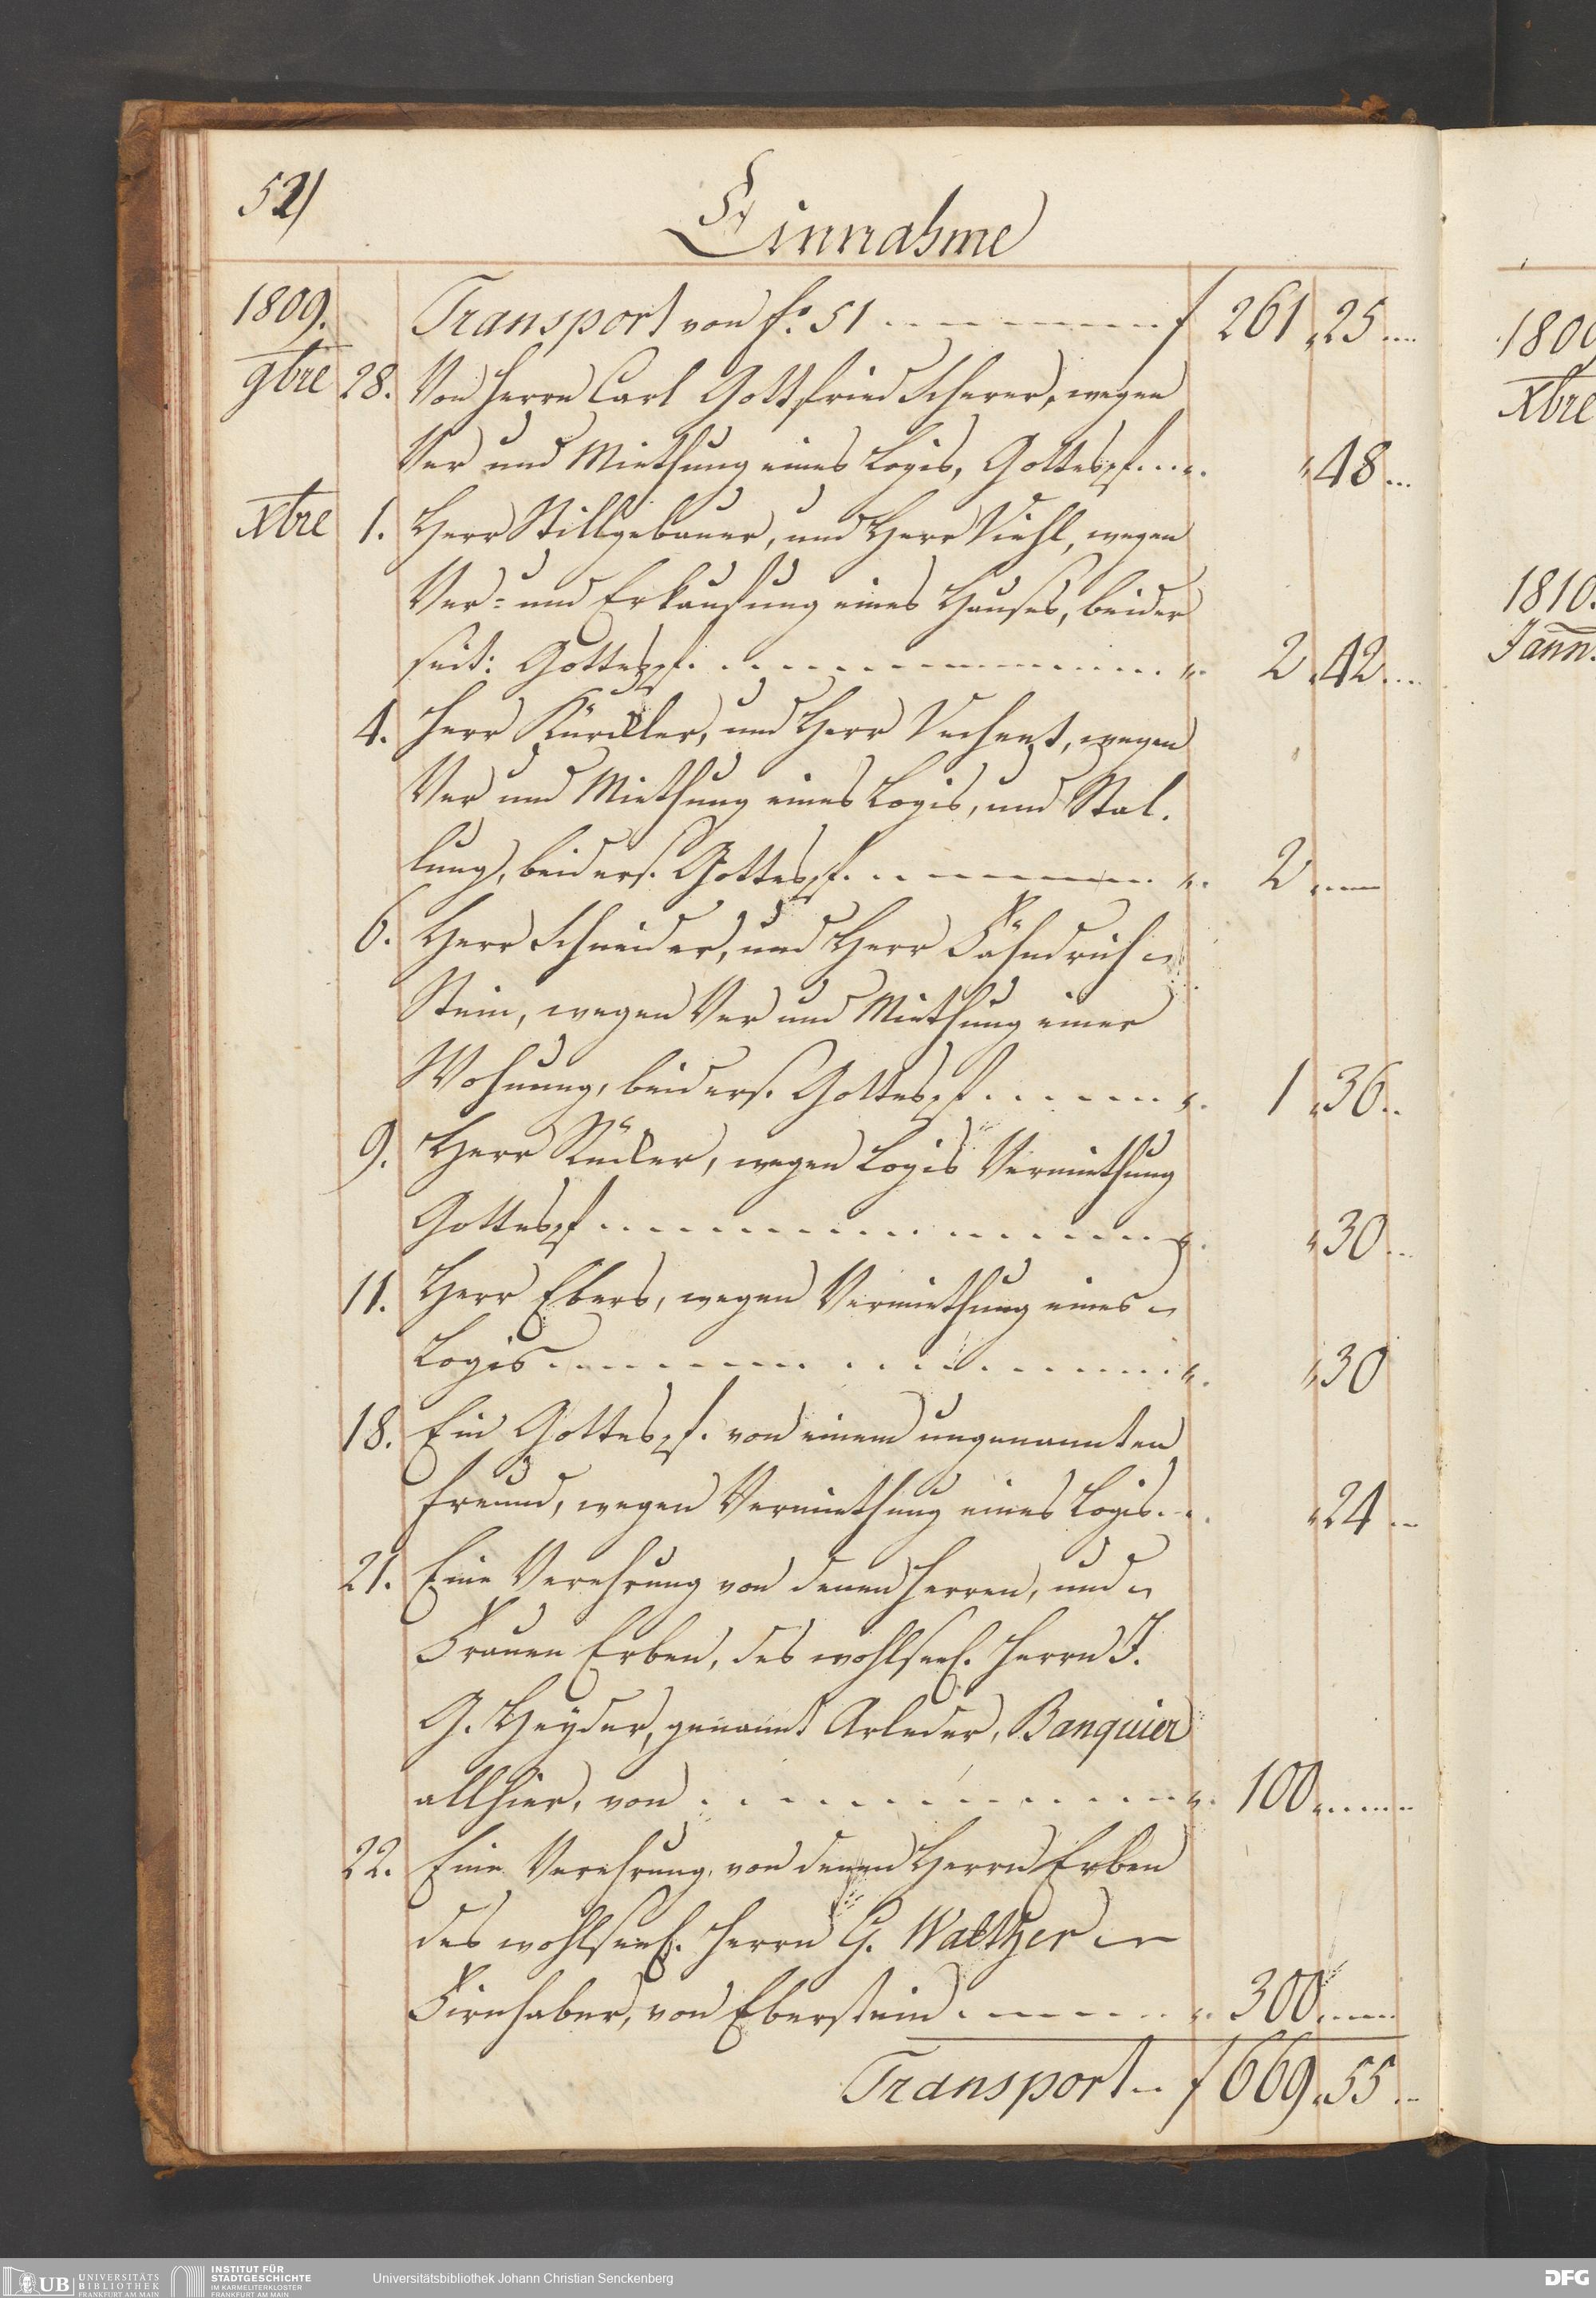 52)
Einnahme
1809. Transport von fo. 51 f 261 „ 25
9bre 28. Von Herrn Carl Gottfried Scherer, wegen
Ver und Miethung eines Logis, Gottespf. „ 48
Xbre 1. Herr Stillgebauer, und Herr Diehl, wegen
Ver- und Erkaufung eines Hauses, beider
seit: Gottespf. 2 „ 42
4. Herr und Herr wegen
Ver und Miethung eines Logis, und Stal-
lung, beiders. Gottespf. 2
6. Herr Schneider, und Herr Fähndrich
Stein, wegen Ver und Miethung einer
Wohnung, beiders. Gottespf. 1 „ 36
9. Herr wegen Logis Vermiethung
Gottespf „ 30
11. Herr Ebers, wegen Vermiethung eines
Logis „ 30
18. Ein Gottespf. von einem ungenannten
Freund, wegen Vermiethung eines Logis „ 24
21. Eine Verehrung von denen Herren, und
Frauen Erben, des wohlseel. Herrn J.
G. Heyder, genannt Arleder, Banquier
allhier, von 100
22. Eine Verehrung von denen Herrn Erben
des wohlseel. Herrn G. Walther
Firnhaber, von Eberstein 300
Transport f 669 „ 55
1809
Xbre
1810.
Jann.
UB UNIVERSITÄTS
BIBLIOTHEK
FRANKFURT AM MAIN
INSTITUT FÜR
STADTGESCHICHTE
IM KARMELITERKLOSTER
FRANKFURT AM MAIN
Universitätsbibliothek Johann Christian Senckenberg
DFG